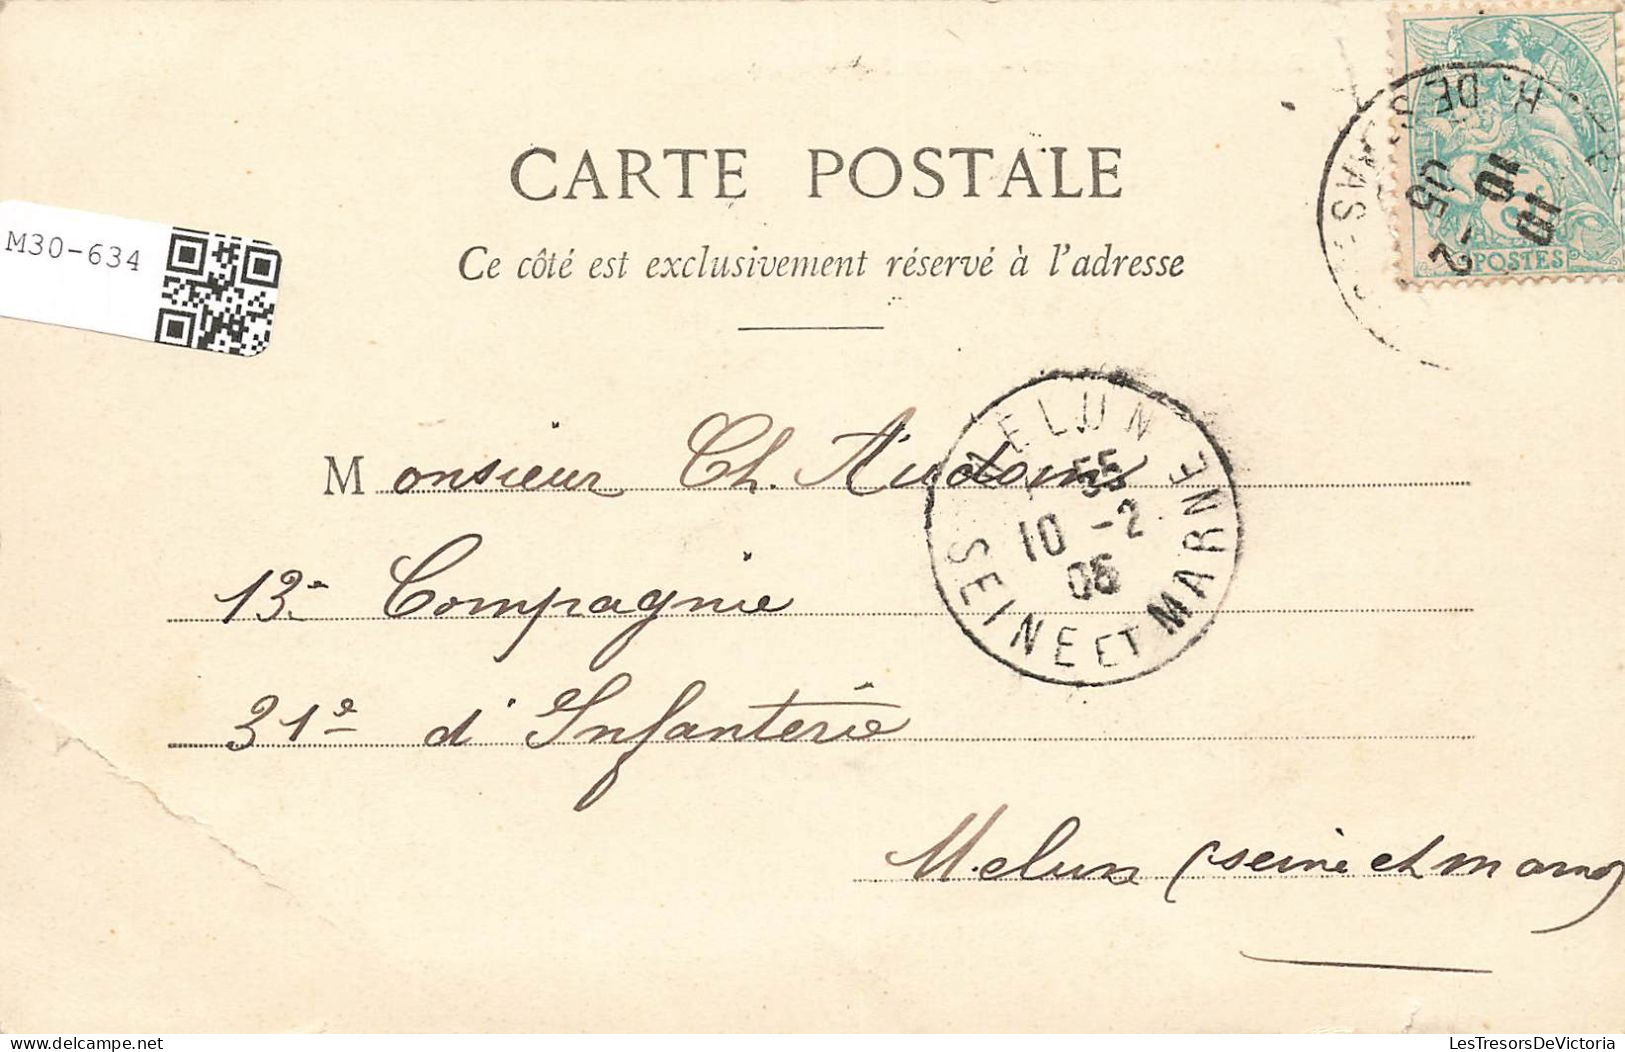 CARTE POSTALE
Ce côté est exclusivement réservé à l'adresse
M30-634
POSTES
R. DE
10
10 -2
05
MELUN
55
10 -2
05
SEINE ET MARNE
Monsieur Ch.
13e Compagnie
31e d'Infanterie
Melun (seine et marne)
LesTresorsDeVictoria
delcampe.net